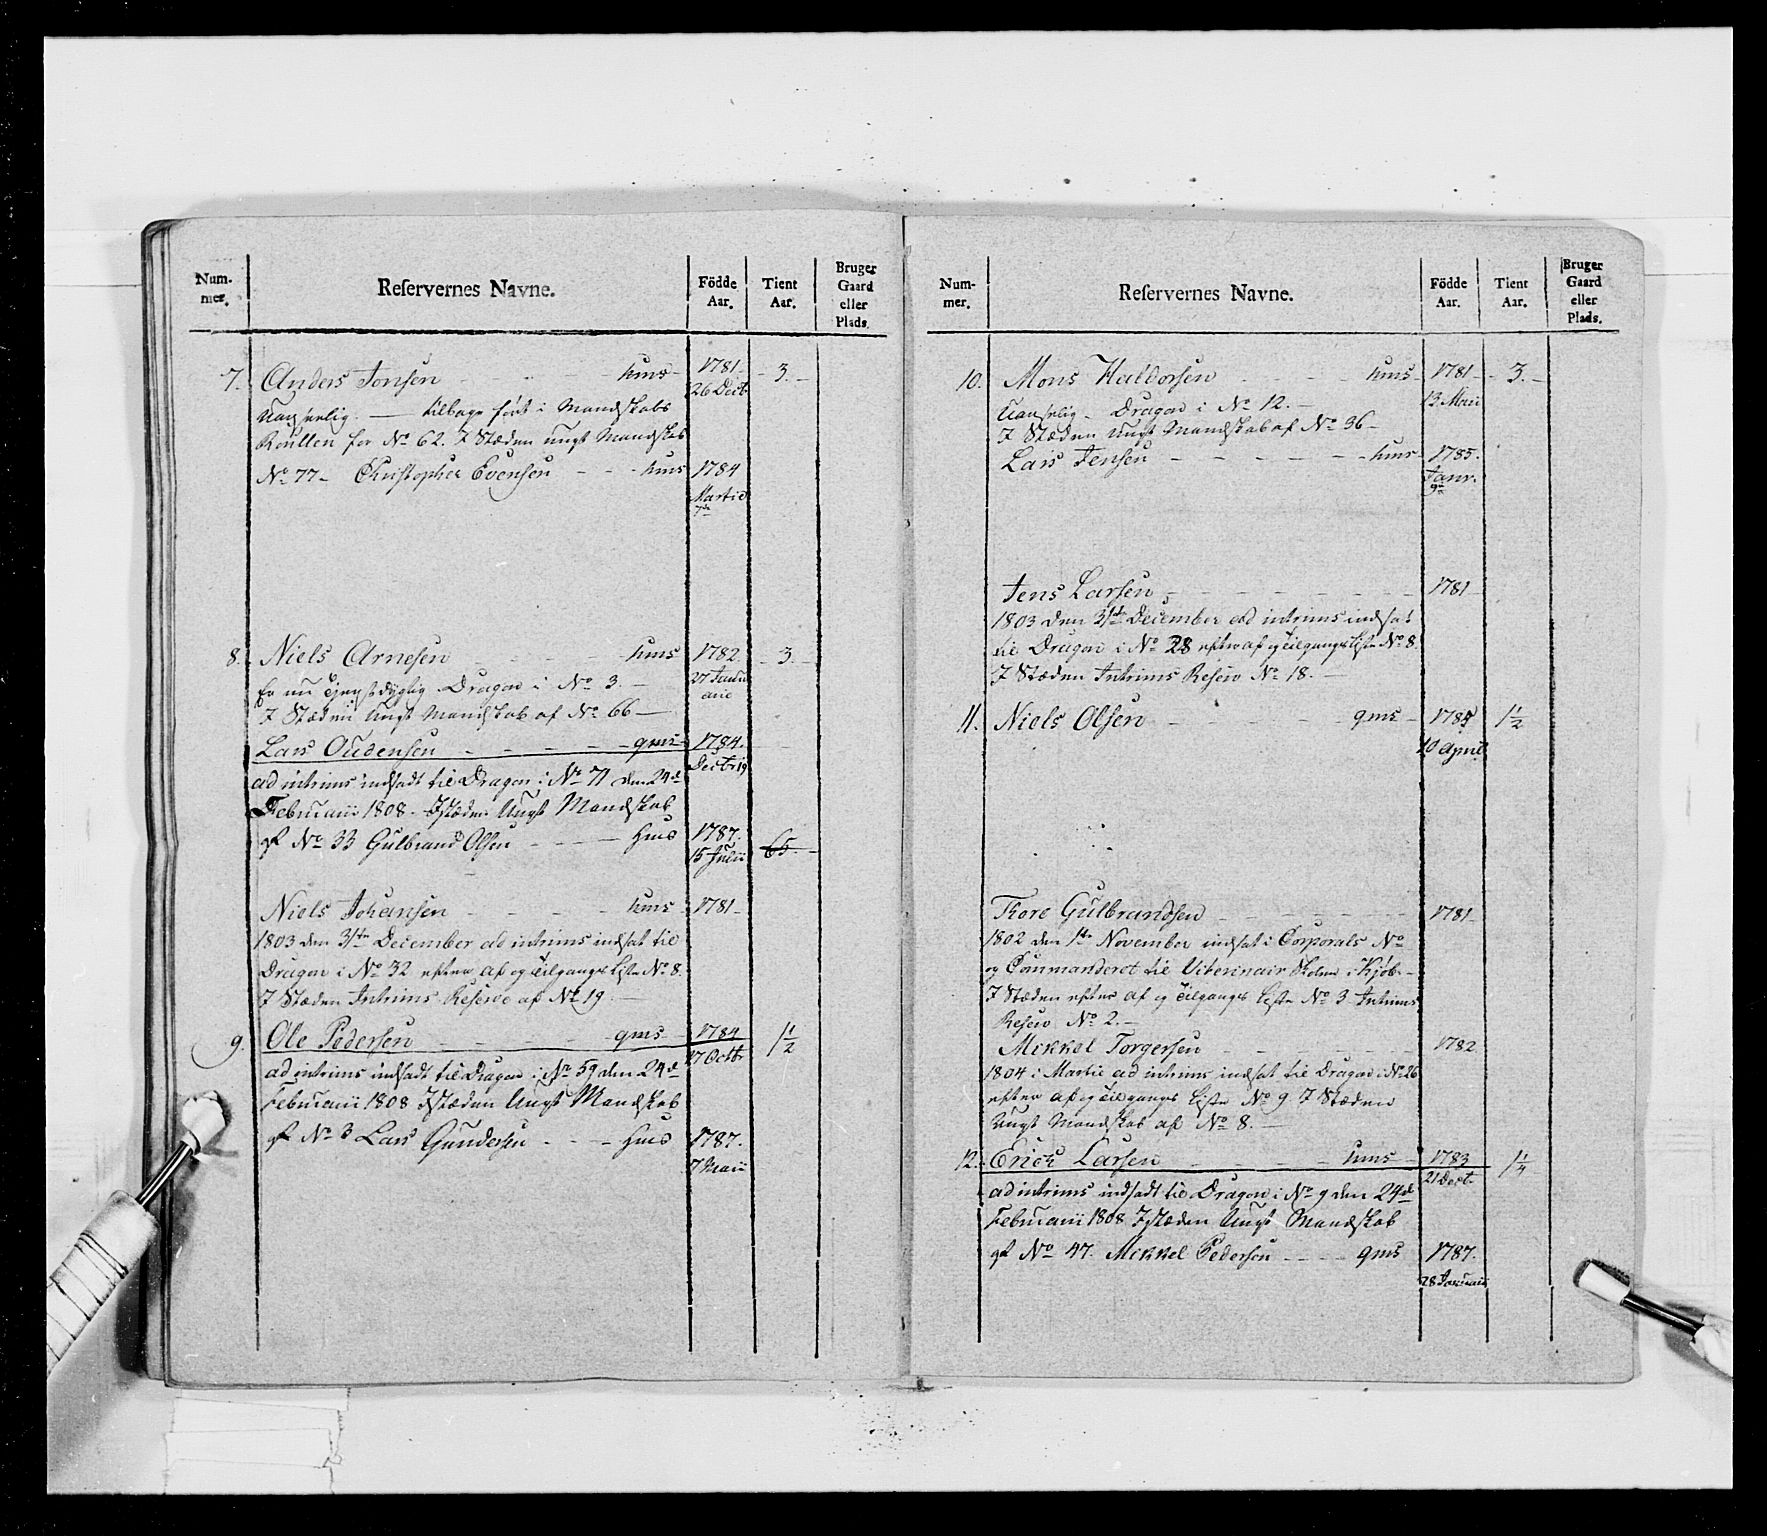 Num-
mer.
Reservernes Navne.
Födde
Aar.
Tient
Aar.
Bruger
Gaard
eller
Plads.
7. Anders Jonsen - - - hms - 1781 - 3. -
26 Dect.
Uanseelig. — tilbage ført i Mandskabs
Roullen for No 62. I Stæden ungt Mandskab
No 77 - Christopher Evensen - - - hms 1784
Martio
7de
8. Niels Arnesen - - - hms 1782 - 3 -
27 Janu
arie
Er nu tjenstdygtig Dragon i No 3. -
I Stæden Ungt Mandskab af No 66 -
Lars Oudensen - - - gms - 1784.
Dectr 19
ad intrims indsadt til Dragon i No 71 den 24de
Februarii 1808. Istæden Ungt Mandskab
af No 33 Gulbrand Olsen - - - hms 1787.
15 Julii
Niels Johansen - - - hms - 1781 -
1803 den 31te December ad intrims indsat til
Dragon i No 32 efter af og tilgangs Liste No 8.
I Stæden Intrims Reserve af No 19 -
9. Ole Pedersen - - - gms - 1784 1 1/2
17 Octb.
ad intrims indsadt til Dragon i No 59 den 24de
Februarii 1808 Istæden Ungt Mandskab
af No 3 Lars Gundersen - - - hms 1787.
7 Maii
Num-
mer.
Reservernes Navne.
Födde
Aar.
Tient
Aar.
Bruger
Gaard
eller
Plads.
10. Mons Haldorsen - - - hms - 1781 - 3. -
13 Maii
Uanselig - Dragon i No 12. -
I Stæden Ungt Mandskab af No 36 -
Lars Jensen - - - hms - 1785.
Janr.
Jens Larsen - - - 1781
1803 den 31te December ad intrims indsat
til Dragon i No 28 efter af og tilgangs Liste No 8.
I Stæden Intrims Reserv No 18. -
11. Niels Olsen - - - gms - 1785 1 1/2
10 April
Thore Gulbrandsen - - - 1781
1802 den 1te November indsat i Corporals No
og Commanderet til Viterinair Skolen i Kjøb-
I Stæden efter af og tilgangs Liste No 3 Intrims
Reserv No 2. -
Mikkel Torgersen - - - 1782
1804 i Martie ad intrims indsat til Dragon i No 26
efter af og tilgangs Liste No 9 I Stæden
Ungt Mandskab af No 8. -
12. Erich Larsen - - - hms - 1783 1 1/4
21 Dect.
ad intrims indsadt til Dragon i No 9 den 24de
Februarii 1808 Istæden Ungt Mandskab
af No 47. Mikkel Pedersen - - - gms 1787.
28 Januarii